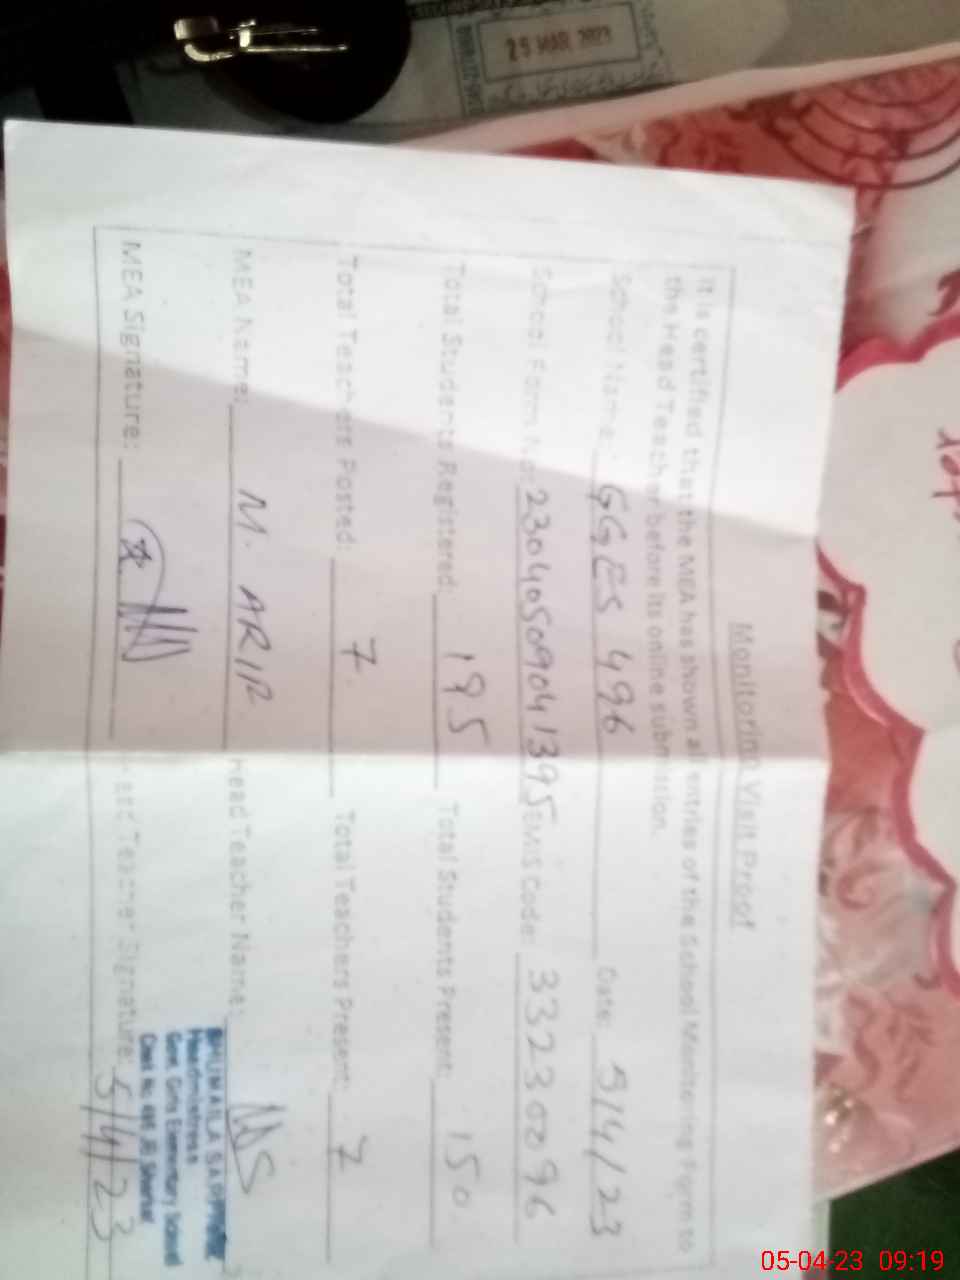 Monitoring Visit Proof
It is certified that the MEA has shown all entries of the School Monitoring Form to
the Head Teacher before its online submission.
School Name: GGES 496 Date: 5/4/23
School Form No: 23040509041395 EMIS Code: 33230096
Total Students Registered: 195 Total Students Present: 150
Total Teachers Posted: 7 Total Teachers Present: 7
MEA Name: M. ARIF Head Teacher Name:
Headmistress
Govt. Girls Elementary School
MEA Signature: Head Teacher Signature: 5/4/23
29 MAR 2023
05-04-23 09:19